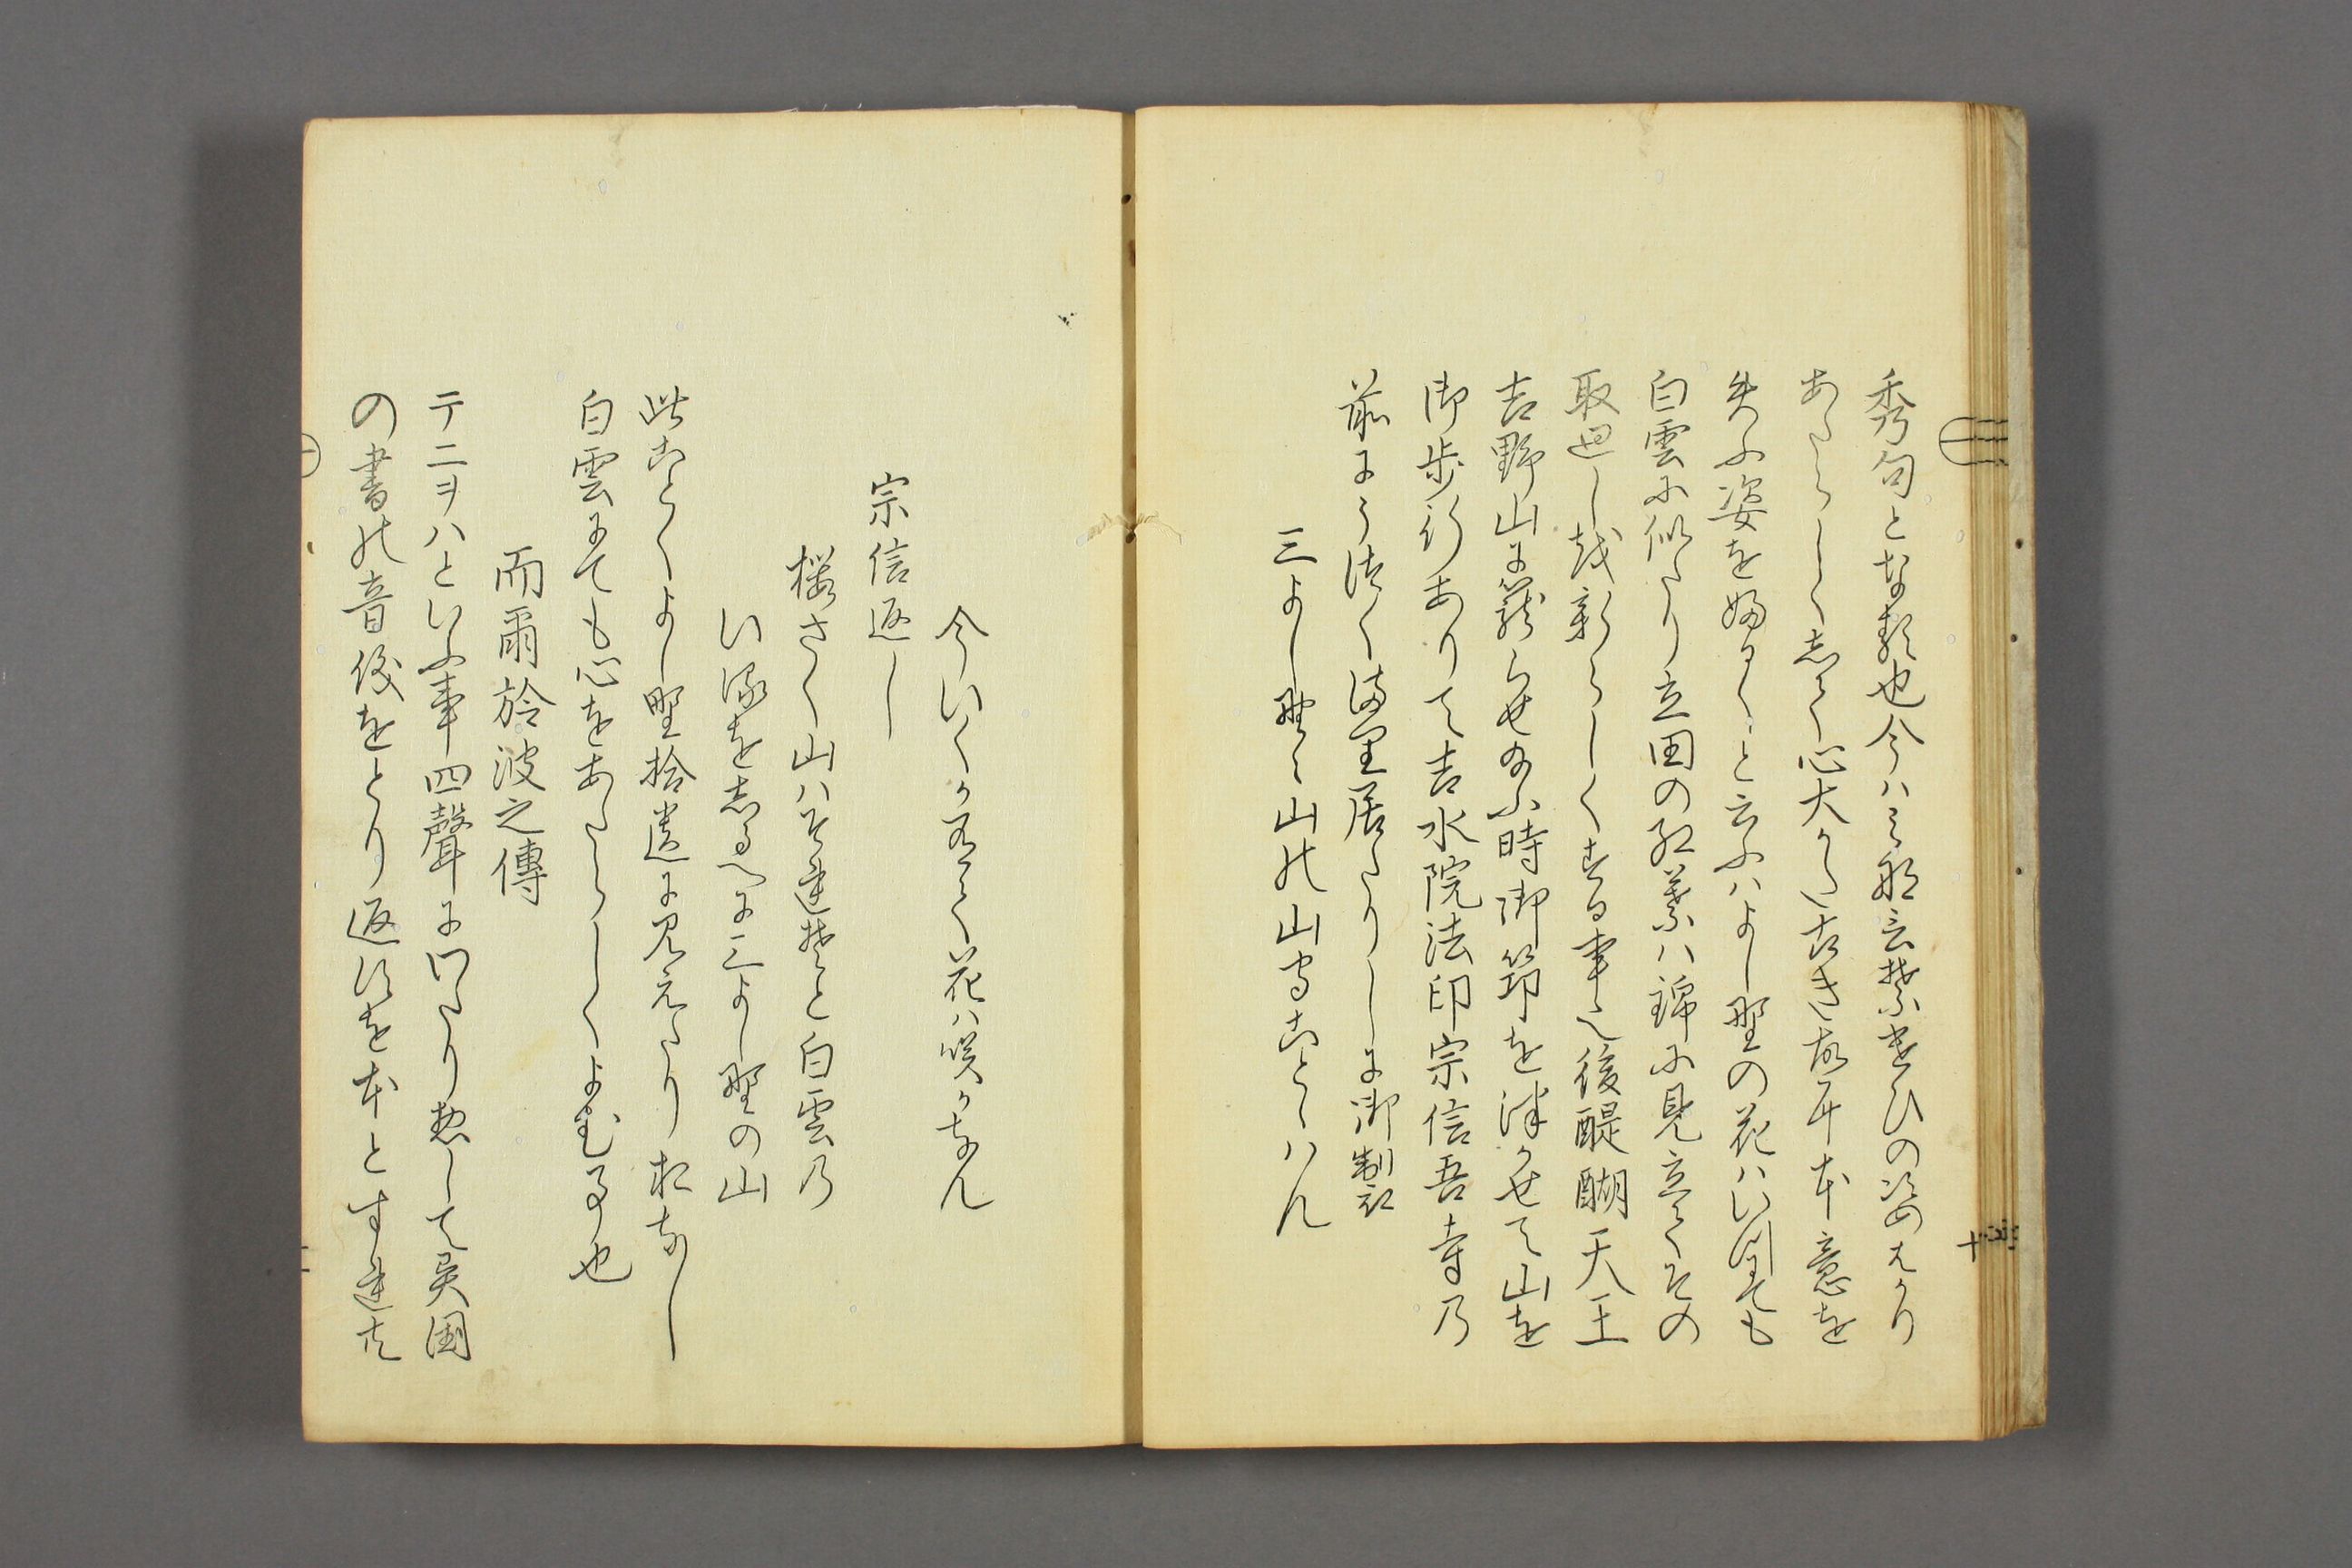 秀句とな類也今ハミ那言禁遣ひの姿はかり
あたらしくして心大かた古き故耳本意を
失ふ姿を婦るくと云ふハよし野の花ハいつ〻も
白雲に似たり立田の紅葉ハ錦に見立てその
取廻し越新らしくする事也後醍醐天王
吉野山に籠らせ給ふ時御節を津かせて山を
御歩行ありて吉水院法印宗信吾寺乃
前にうつくまり居たりしに御製
三よし野ゝ山の山守ことゝハん
今いくか有て花ハ咲かなん
宗信返し
桜さく山ハそれそと白雲乃
い流をしるへに三よし野の山
此ことくよし野拾遺に見えたり相なし
白雲にても心をあたらしくよむ事也
而爾於波之傳
テニヲハといふ事四聲にわたり惣して異国
の書の音後をとり返にを本とす連共